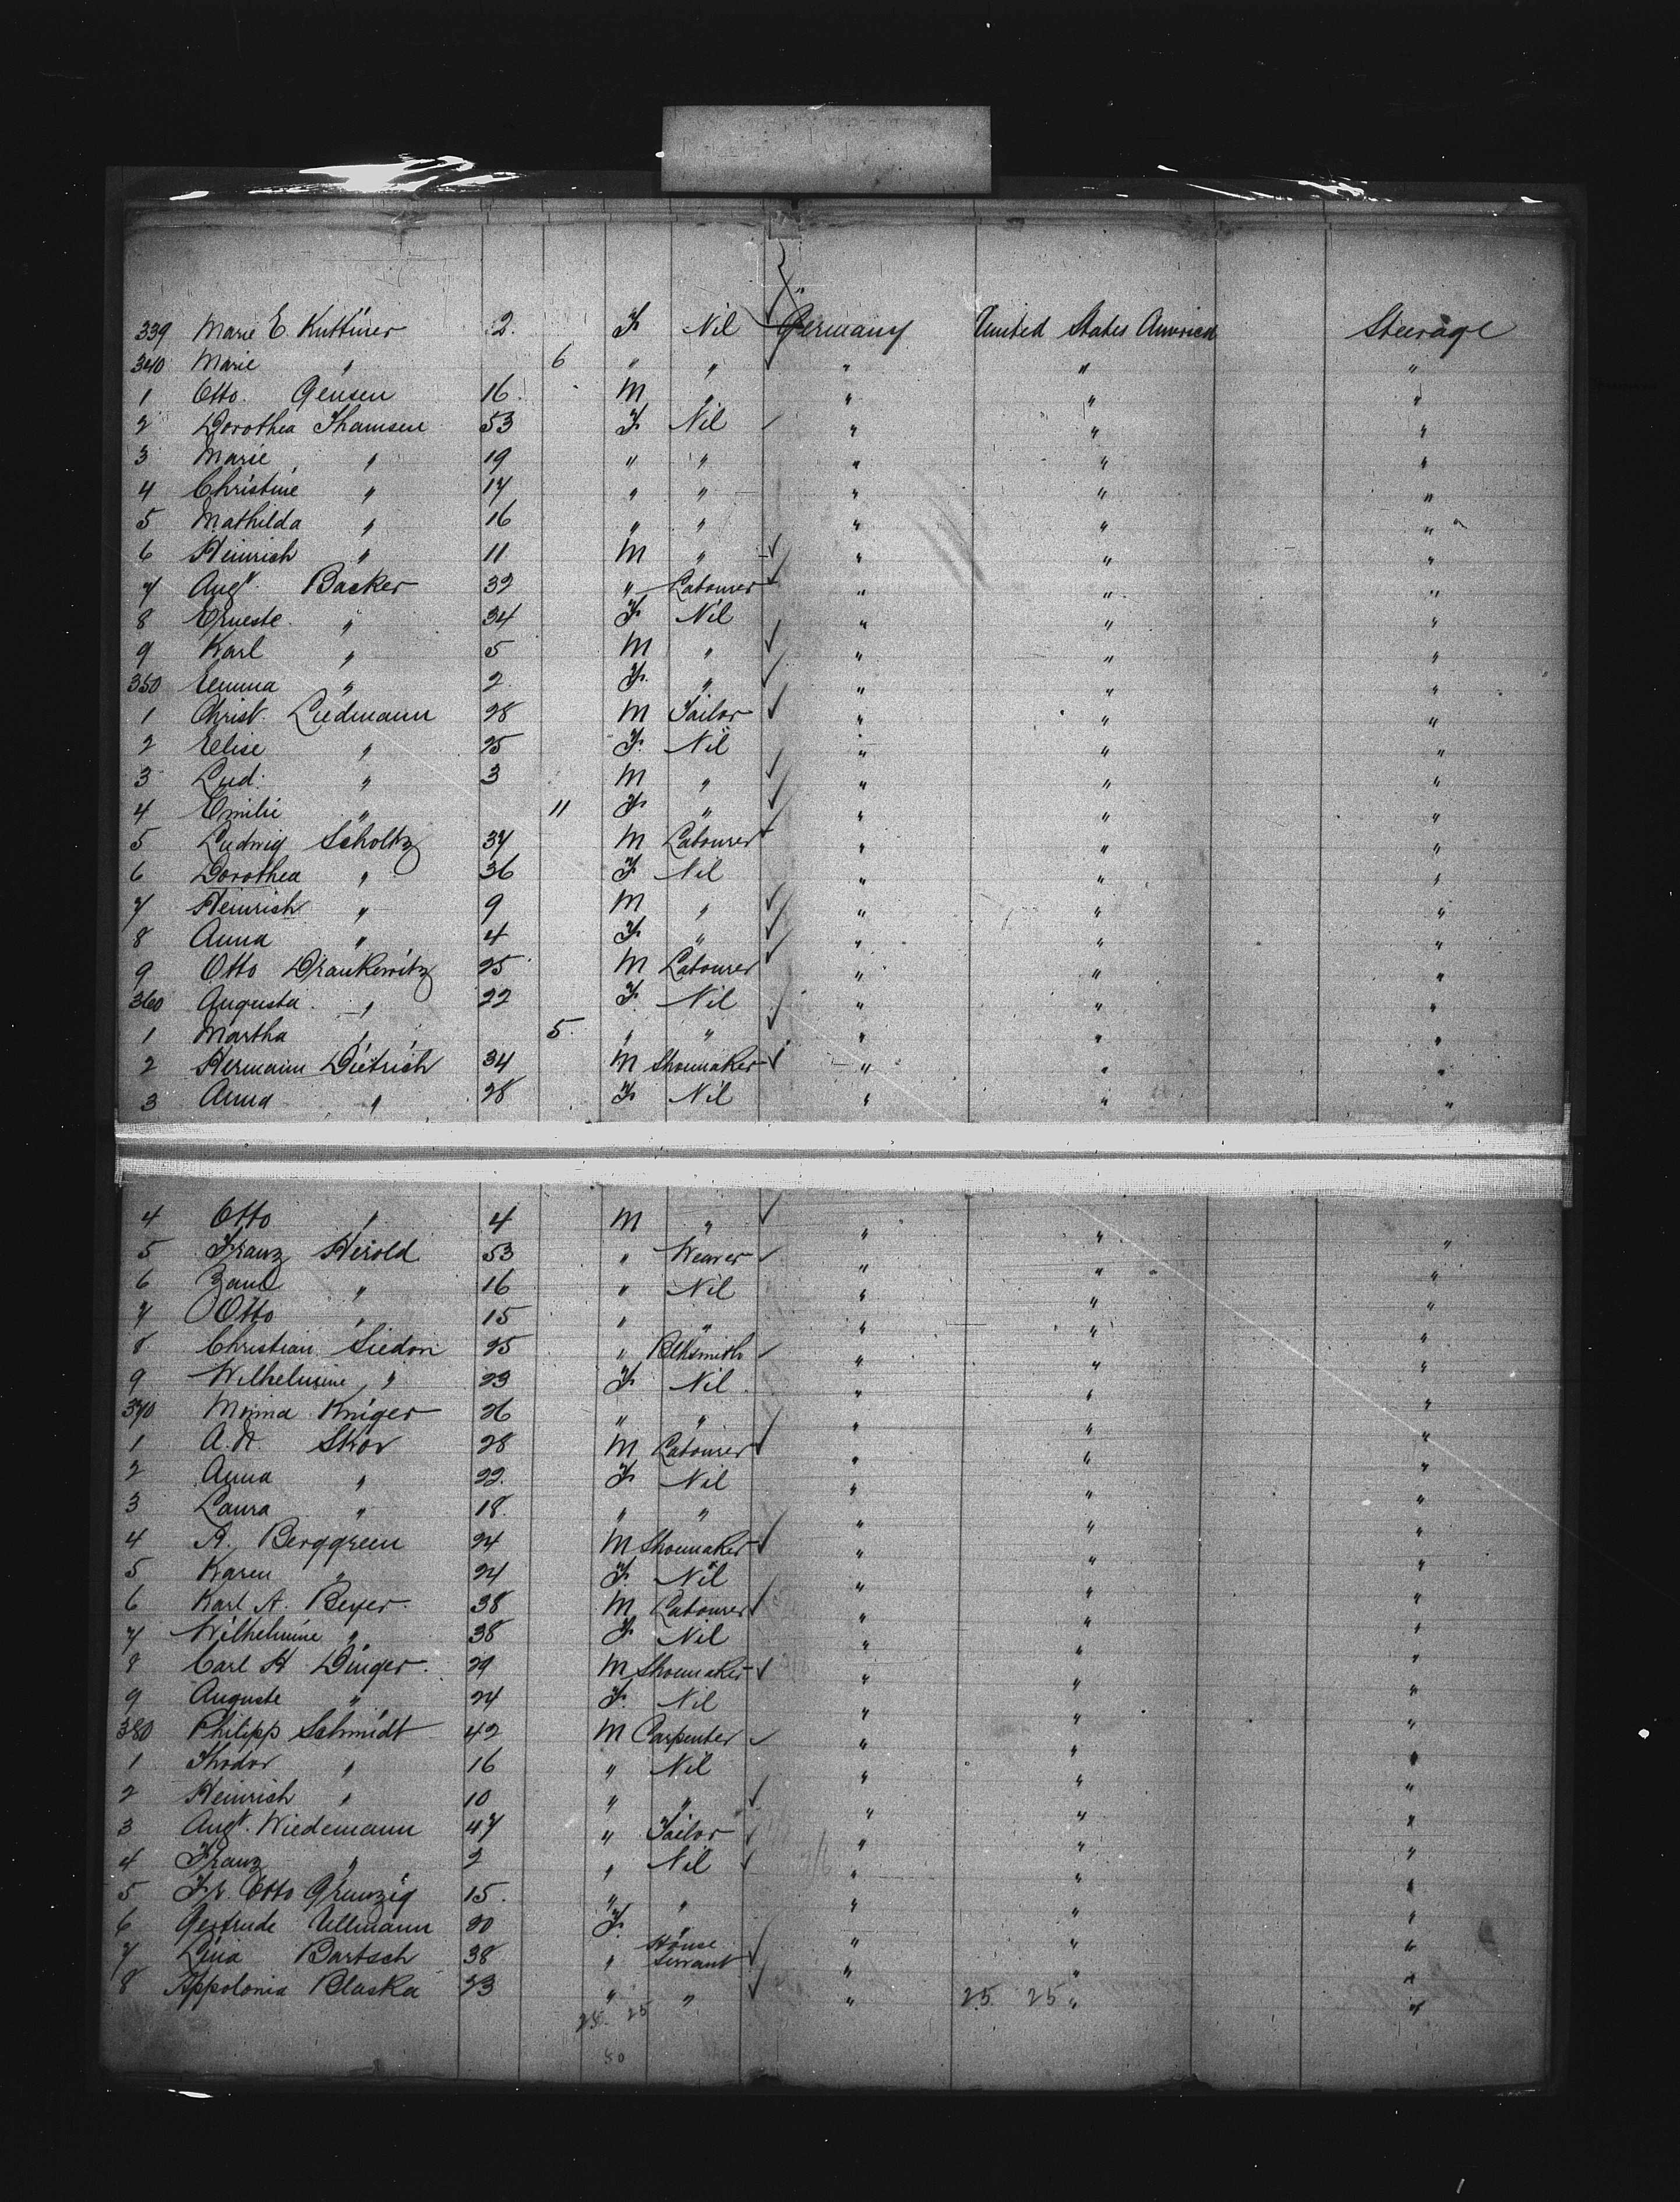 339 Marie E. Kuttiner 2. F. Nil Germany United States America Steerage
340 Marie " 6 " " " " "
1 Otto Gensen 16. M " " " "
2 Dorothea Thamsen 53 F. Nil " " "
3 Marie " 19 " " " " "
4 Christine " 17 " " " " "
5 Mathilda " 16 " " " " "
6 Heinrich " 11 M " " " "
7 Augt. Backer 32 " Labourer " " "
8 Erneste " 34 F. Nil " " "
9 Karl " 5 M " " " "
350 Emma " 2 F. " " " "
1 Christ. Liedmann 28 M Tailor " " "
2 Elise " 25 F. Nil " " "
3 Lud. " 3 M " " " "
4 Emilie " 11 F. " " " "
5 Ludwig Scholtz 37 M Labourer " " "
6 Dorothea " 36 F. Nil " " "
7 Heinrich " 9 M " " " "
8 Anna " 4 F. " " " "
9 Otto Drankewitz 25 M Labourer " " "
360 Augusta " 22 F. Nil " " "
1 Martha " 5. " " " " "
2 Hermann Dietrich 34 M Shoemaker " " "
3 Anna " 28 F. Nil " " "
4 Otto " 4 M " " " "
5 Franz Herold 53 " Weaver " " "
6 " 16 " Nil " " "
7 Otto " 15 " " " " "
8 Christian Siedon 25 " Blksmith " " "
9 Wilhelmine " 23 F. Nil " " "
370 Minna Krüger 26 " " " " "
1 A. H. Skov 28 M Labourer " " "
2 Anna " 22. F. Nil " " "
3 Laura " 18. " " " " "
4 A. Berggreen 24 M Shoemaker " " "
5 Karen " 24 F. Nil " " "
6 Karl A. Beyer 38 M Labourer " " "
7 Wilhelmine " 38 F. Nil " " "
8 Carl H Dinger 29 M Shoemaker " " "
9 Auguste " 24 F. Nil " " "
380 Philipp Schmidt 42 M Carpenter " " "
1 Thodor " 16 " Nil " " "
2 Heinrich " 10 " " " " "
3 Augt. Wiedemann 47 " Tailor " " "
4 Franz " 2 " Nil " " "
5 Fr. Otto Grunzig 15. " " " " "
6 Gertrude Ullmann 20 F. " " " "
7 Lina Bartsch 38 " House Servant " " "
8 Appolonia Blaska 23 " " " 25 25 " "
25 25
50